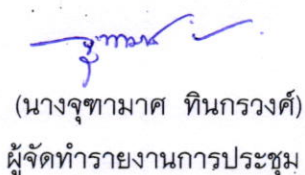 (นางจุฑามาศ ทินกรวงศ์)
ผู้จัดทำรายงานการประชุม